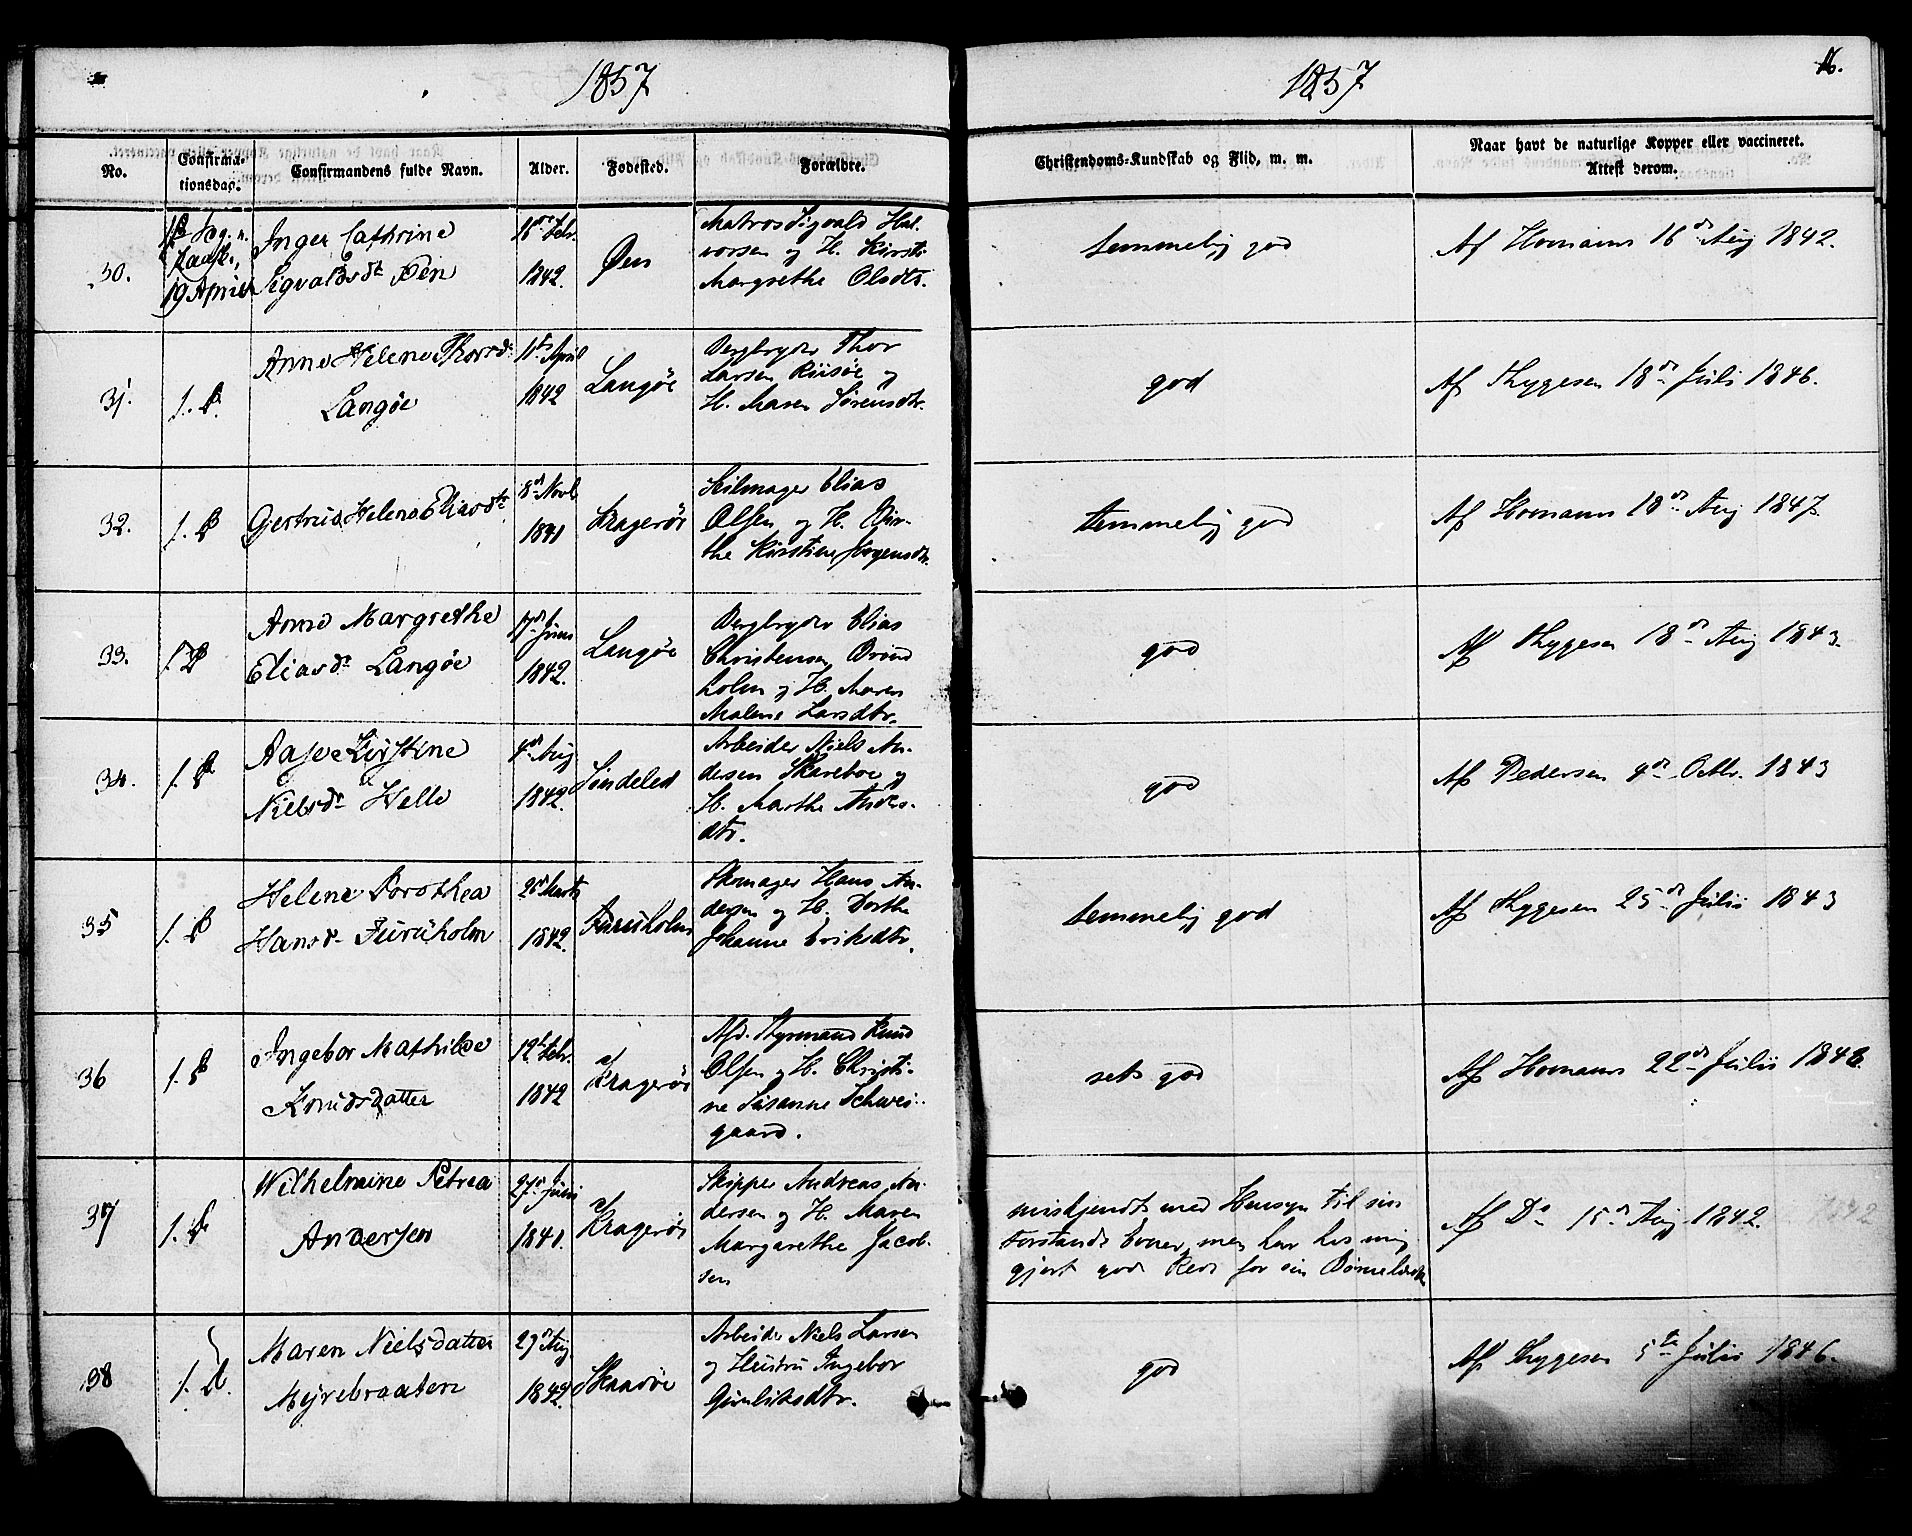 1857
1857
16.
No.
Confirma-
tionsdag.
Confirmandens fulde Navn.
Alder.
Fødested.
Forældre.
Christendoms-Kundskab og Flid, m. m.
Naar havt de naturlige Kopper eller vaccineret.
Attest derom.
30.
19 April
Inger Cathrine
Sigvaldsdr Øen
16de Febr.
1842.
Øen
Matros Sigvald Hal-
vorsen og H. Kirsti
Margrethe Olsdtr.
temmelig god
Af Homann 16de Aug 1842.
31.
Anne Helene Thorsdr
Langøe
11te April
1842
Langøe
Bergbryder Thor
Larsen Riisøe og
H. Maren Sørensdtr.
god
Af Thygesen 18de Juli 1846.
32.
Gertrud Helene Eliasdtr
8de Novb
1841
Kragerøe
Seilmager Elias
Olsen og H. Bir-
the Kirstine Jørgensdtr.
temmelig god
Af Homann 18de Aug 1847.
33.
Anne Margrethe
Eliasdr Langøe
17de Juni
1842.
Langøe
Bergbryder Elias
Christensen
holm og H. Maren
Malene Larsdtr.
god
Af Thygesen 18de Aug 1843.
34.
Aase Kirstine
Nielsdr Helle
4de Aug
1842.
Søndeled
Arbeider Niels An-
dersen Skareboe og
H. Marthe Anders-
dtr.
god
Af Pedersen 4de Octbr. 1843
35
Helene Dorothea
Hansdr Furuholm
26de Marts
1842.
Furuholm
Skomager Hans An-
dersen og H. Dorthe
Johanne Eriksdtr.
temmelig god
Af Thygesen 25de Julii 1843
36
Ingebor Mathilde
Knudsdatter
12te Febr.
1842
Kragerøe
Afd. Styrmand Knud
Olsen og H. Christi-
ne Susanne Schwei-
gaard.
god
Af Homann 22de Julii 1848.
37
Wilhelmine Petrea
Andersen
Juni
1841.
Kragerøe
Skipper Andreas An-
dersen og H. Maren
Margarethe Jacob-
sen
miskjendt med Hensyn til sin
Forstands Evner, men har hos mig
gjort god Rede for sin Børnelærdom
Af Do 15de Aug 1842.
38
Maren Nielsdatter
Myrebraaten
27de Aug.
1842.
Skaarøe
Arbeider Niels Larsen
og Hustru Ingebor
god
Af Thygesen 5te Julii 1846.